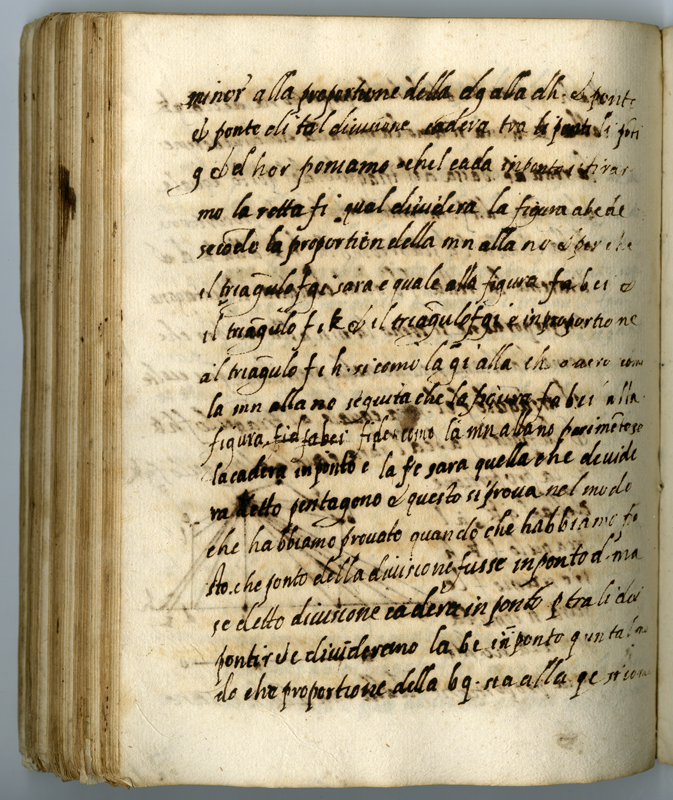 minor alla proportione della dg alla dh. et ponte
el ponto di tal divisione cadera tra li ponti
g et d hor poniamo chel cada in ponto i et tirar
mo la retta fi qual dividera la figura abcde
secōdo la proportion della mn alla no et per che
il triāgulo fgi sara equale alla figura fabei et
il triāgulo fik et il triāgulo fgi e in proportione
al triāgulo fih. si como la gi alla ih overo como
la mn alla no seguita che la figura fabei alla
figura fid como la mn alla no parimēte se
la cadera in ponto e la fe sara quella che devide
ra detto pentagono et questo si prova nel modo
che habbiamo provato quando che habbiamo po
sto. che ponto della divisione fusse in ponto d. ma
se detto divisione cadera in ponto p tra li dui
ponti e divideremo la be in ponto q un tal
do che proportione della bq. sia alla qe si como